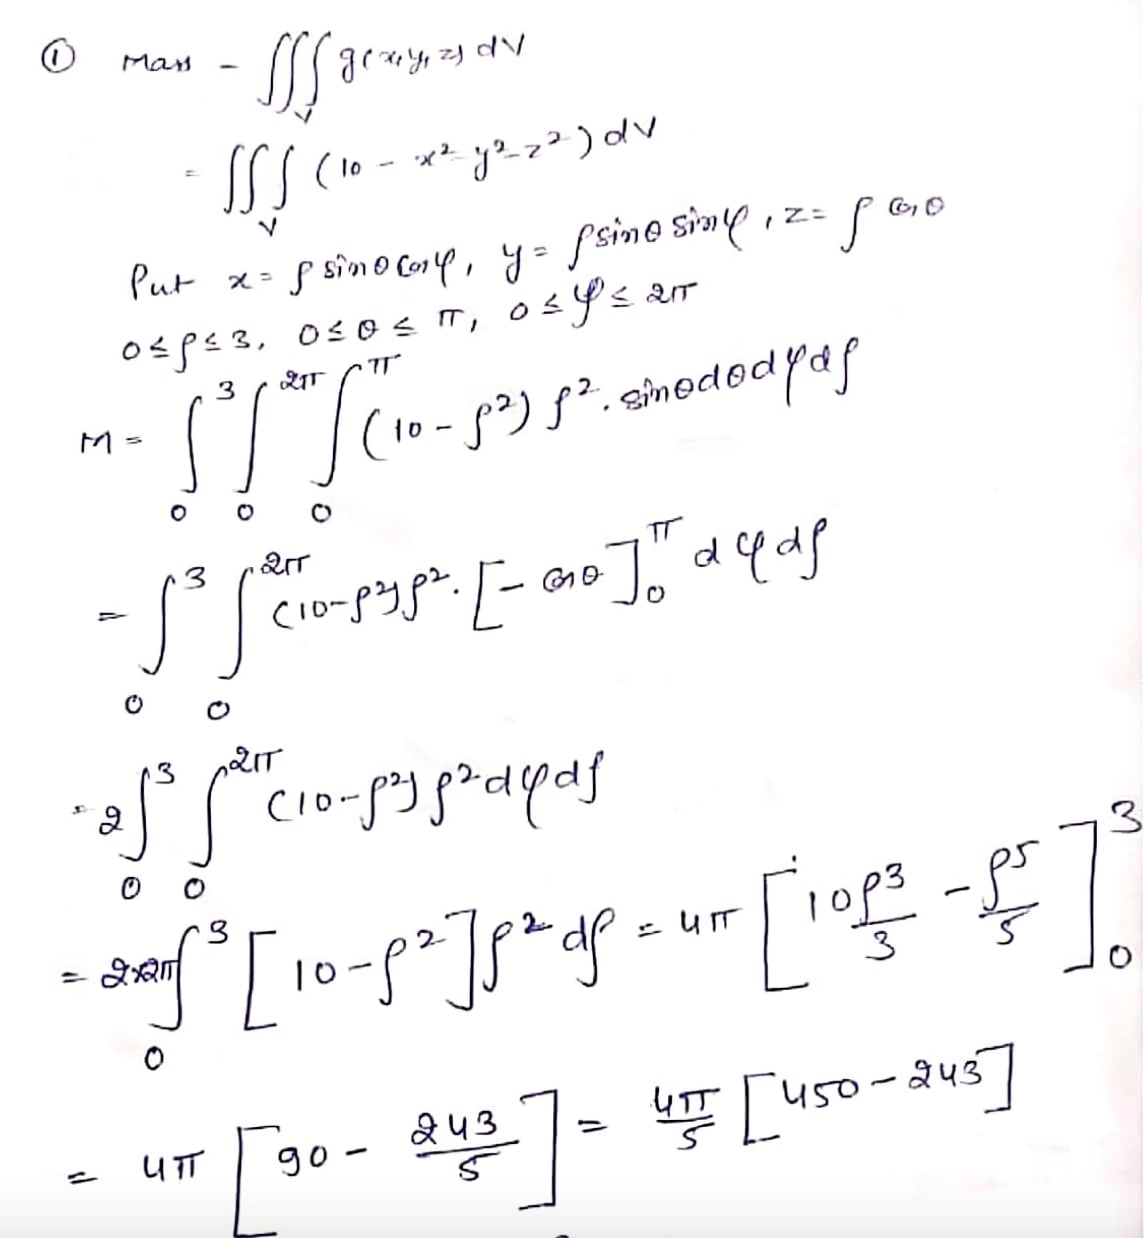 ① Mass - ∭_V g(x,y,z) dV
= ∭_V (10 - x² - y² - z²) dV
Put x = ρ sinθ cosφ, y = ρ sinθ sinφ, z = ρ cosθ
0 ≤ ρ ≤ 3, 0 ≤ θ ≤ π, 0 ≤ φ ≤ 2π
M = ∫₀³ ∫₀^2π ∫₀^π (10 - ρ²) ρ². sinθ dθ dφ dρ
= ∫₀³ ∫₀^2π (10-ρ²)ρ². [-cosθ]₀^π dφ dρ
= 2∫₀³ ∫₀^2π (10-ρ²) ρ² dφ dρ
= 2×2π ∫₀³ [10-ρ²]ρ² dρ = 4π [10ρ³/3 - ρ⁵/5]₀³
= 4π [90 - 243/5] = 4π/5 [450 - 243]